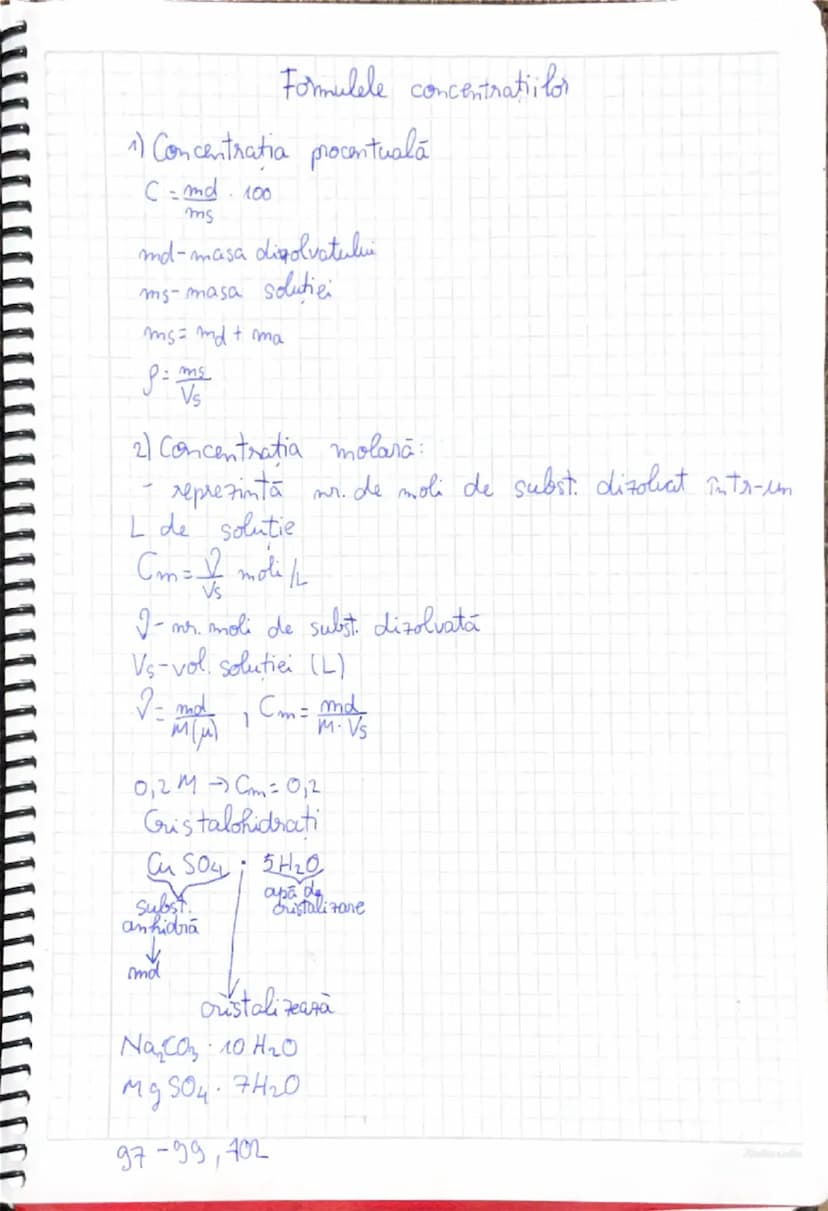 Formulele concentrațiilor
1) Concentrația procentuală
C = md/ms · 100
md-masa dizolvatului
ms-masa soluției
ms = md + ma
ρ = ms/Vs
2) Concentrația molară:
- reprezintă nr. de moli de subst. dizolvat într-un
L de soluție
Cm = ν/Vs moli/L
ν - nr. moli de subst. dizolvată
Vs-vol. soluției (L)
ν = md/M(μ) , Cm = md/M·Vs
0,2 M → Cm = 0,2
Cristalohidrați
CuSO4 · 5H2O
subst. anhidră
apă de cristalizare
md
cristalizează
Na2CO3 · 10 H2O
MgSO4 · 7H2O
97-99, 102